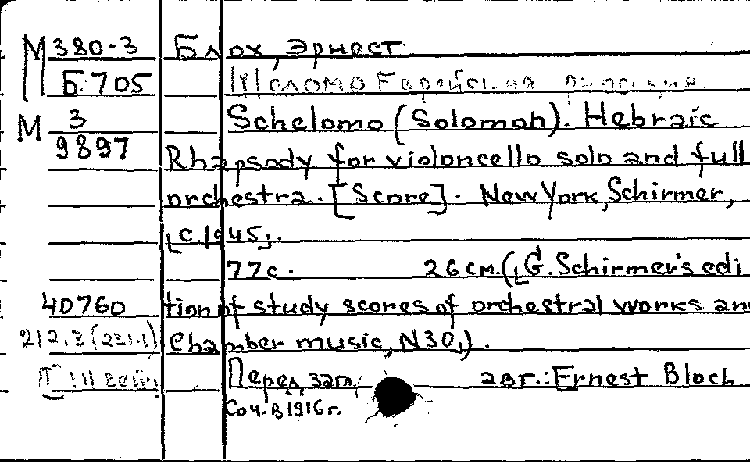 М 380-3 Блох, Эрнест
Б 705 Шеломо Еврейская
М 3 Schelomo (Solomon). Hebraic
9897 Rhapsody for violoncello solo and full
orchestra. [Score]. New York, Schirmer,
[c. 1945].
77 с. 26 см. ([G. Schirmer's edi
40760 tion of study scores of orchestral works and
212.3 (231.1) Chamber music, N30]).
Перед. загл. авт.: Ernest Bloch
Соч. в 1916 г.